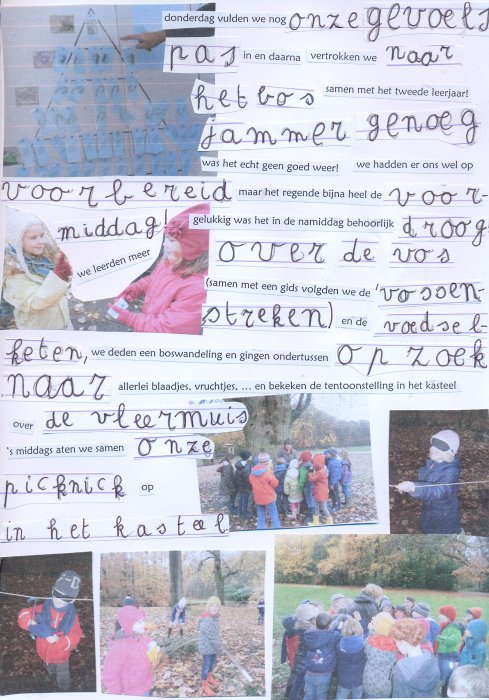 donderdag vulden we nog onze gevoels
pas in en daarna vertrokken we naar
het bos samen met het tweede leerjaar!
jammer genoeg
was het echt geen goed weer! we hadden er ons wel op
voorbereid maar het regende bijna heel de voor-
middag! gelukkig was het in de namiddag behoorlijk droog
we leerden meer over de vos
(samen met een gids volgden we de 'vossen-
streken) en de voedsel-
keten, we deden een boswandeling en gingen ondertussen op zoek
naar allerlei blaadjes, vruchtjes, ... en bekeken de tentoonstelling in het kasteel
over de vleermuis
's middags aten we samen onze
picknick op
in het kasteel.